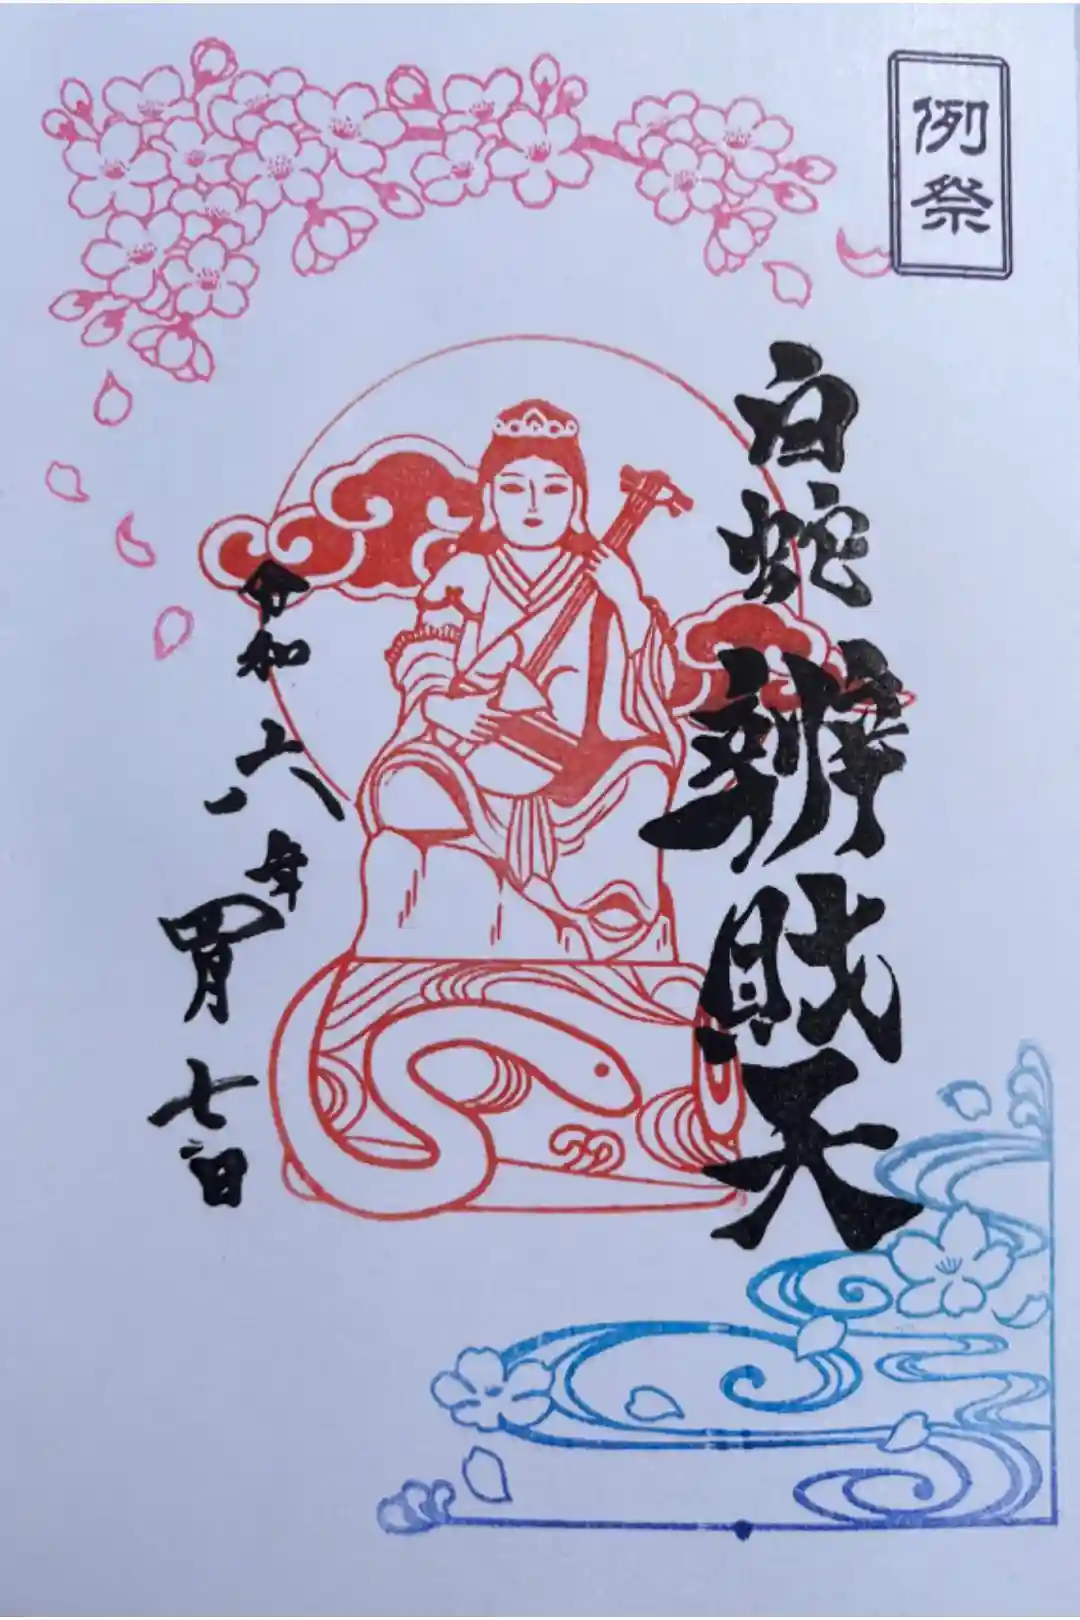 例祭
白蛇辨財天
令和六年四月七日